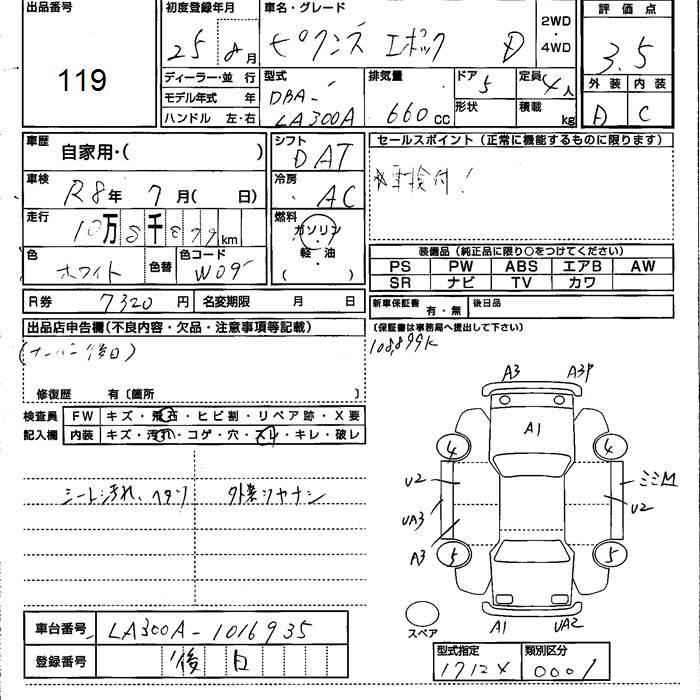 出品番号
119
初度登録年月
25 8月
車名・グレード
ピクシス エポック D
2WD
・
4WD
評価点
3.5
ディーラー・並行
モデル年式 年
ハンドル 左・右
型式
DBA-
LA300A
排気量
660 CC
ドア 5
形状
定員 4人
積載 kg
外装 内装
D C
車歴
自家用・( )
シフト
DAT
車検
R8年 7月( 日)
冷房
AC
走行
10万8千899km
燃料
ガソリン
・
軽・油
( )
色
ホワイト
色替
色コード
W09
R券 7320円
名変期限 月 日
セールスポイント(正常に機能するものに限ります)
*車検付!
装備品(純正品に限り○をつけてください)
PS PW ABS エアB AW
SR ナビ TV カワ
新車保証書 有・無
後日品
(保証書は事務局へ提出して下さい)
108,899K
出品店申告欄(不良内容・欠品・注意事項等記載)
(ナンバー後日)
修復歴 有〔箇所 〕
検査員
記入欄
FW キズ・飛石・ヒビ割・リペア跡・X要
内装 キズ・汚れ・コゲ・穴・スレ・キレ・破れ
シート汚れ、ヘタリ
外装
A3 A3P
A1
4 4
U2 ミミM
UA3 U2
A3
5 5
スペア
A1 UA2
車台番号 LA300A-1016935
登録番号 後日
型式指定
1712X
類別区分
0001